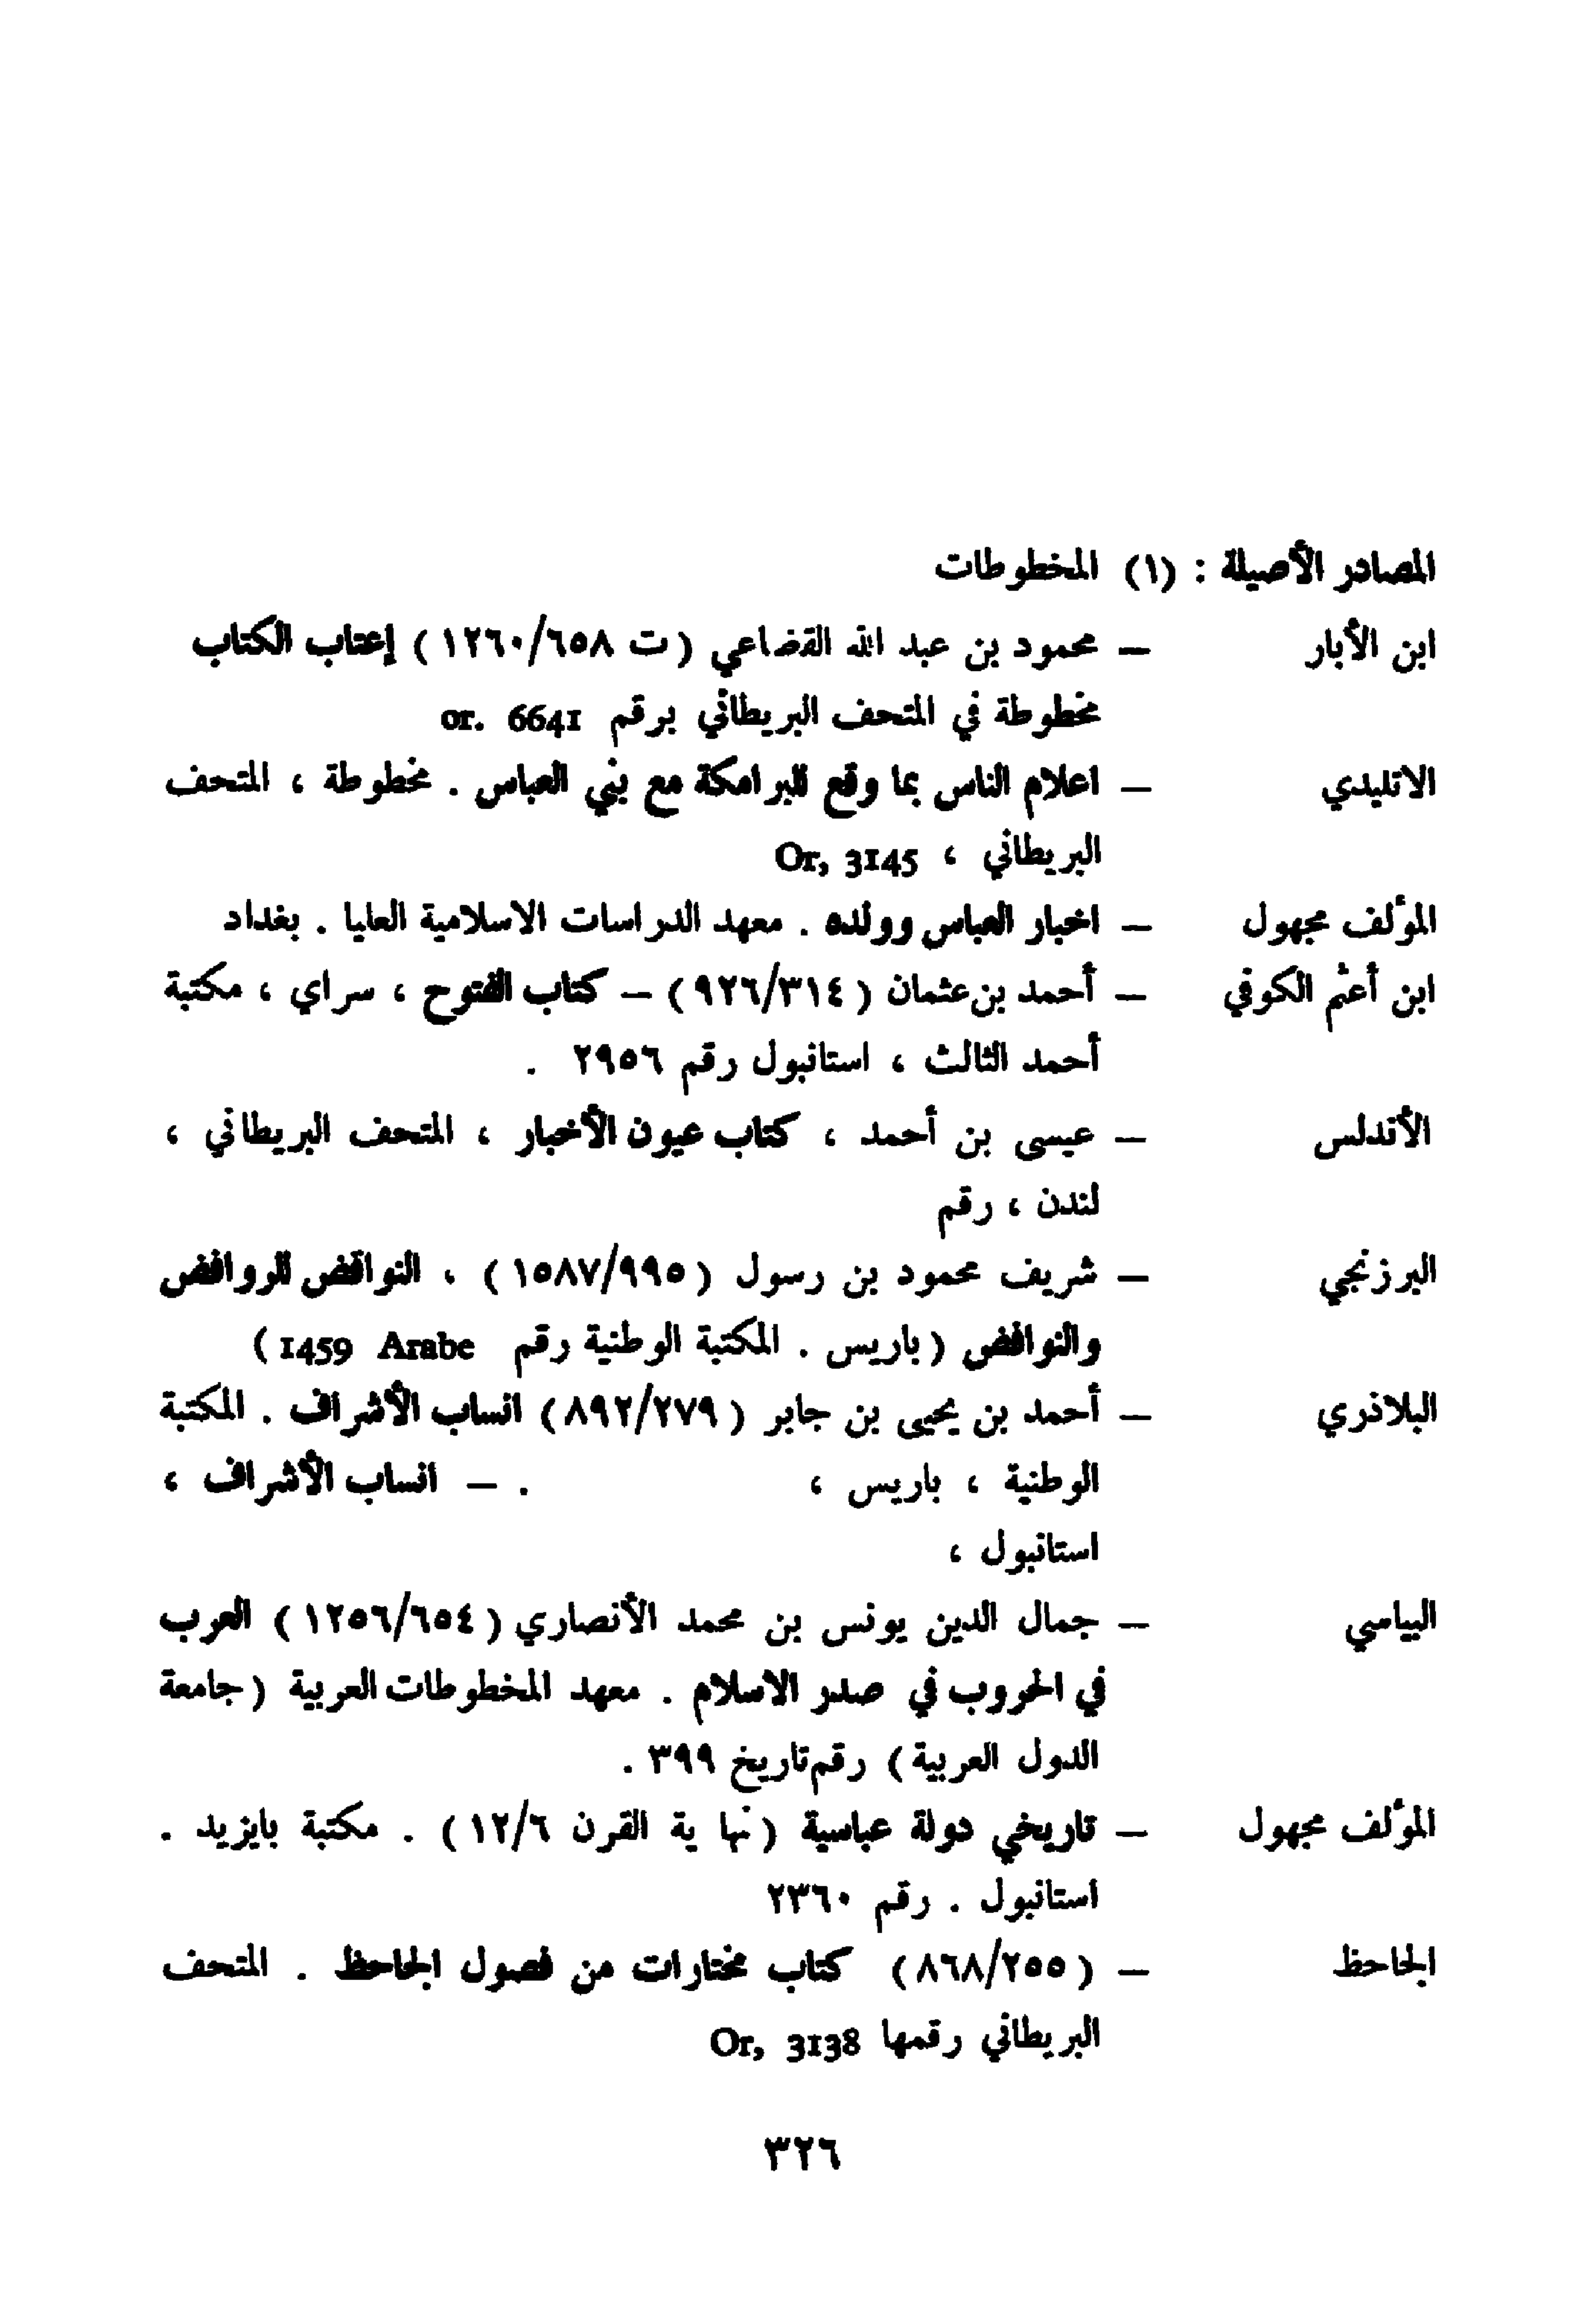 المصادر الأصيلة : (١) المخطوطات
ابن الأبار – محمود بن عبد الله القضاعي (ت ١٢٦٠/٦٥٨) إعتاب الكتاب
مخطوطة في المتحف البريطاني برقم or. 6641
الاتليدي – اعلام الناس بما وقع للبرامكة مع بني العباس . مخطوطة ، المتحف
البريطاني ، Or, 3145
المؤلف مجهول – اخبار العباس وولده . معهد الدراسات الاسلامية العليا . بغداد
ابن أعثم الكوفي – أحمد بن عثمان (٩٢٦/٣١٤) – كتاب الفتوح ، سراي ، مكتبة
أحمد الثالث ، استانبول رقم ٢٩٥٦ .
الأندلس – عيسى بن أحمد ، كتاب عيون الأخبار ، المتحف البريطاني ،
لندن ، رقم
البرزنجي – شريف محمود بن رسول (١٥٨٧/٩٩٥) ، النواقض للروافض
والنوافض (باريس . المكتبة الوطنية رقم 1459 Arabe)
البلاذري – أحمد بن يحيى بن جابر (٨٩٢/٢٧٩) انساب الأشراف . المكتبة
الوطنية ، باريس ، . – انساب الأشراف ،
استانبول ،
البياسي – جمال الدين يونس بن محمد الأنصاري (١٢٥٦/٦٥٤) العرب
في الحروب في صدر الاسلام . معهد المخطوطات العربية (جامعة
الدول العربية) رقم تاريخ ٣٩٩ .
المؤلف مجهول – تاريخي دولة عباسية (نها ية القرن ١٢/٦) . مكتبة بايزيد .
استانبول . رقم ٢٣٦٠
الجاحظ – (٨٦٨/٢٥٥) كتاب مختارات من فصول الجاحظ . المتحف
البريطاني رقمها Or, 3138
٣٢٦